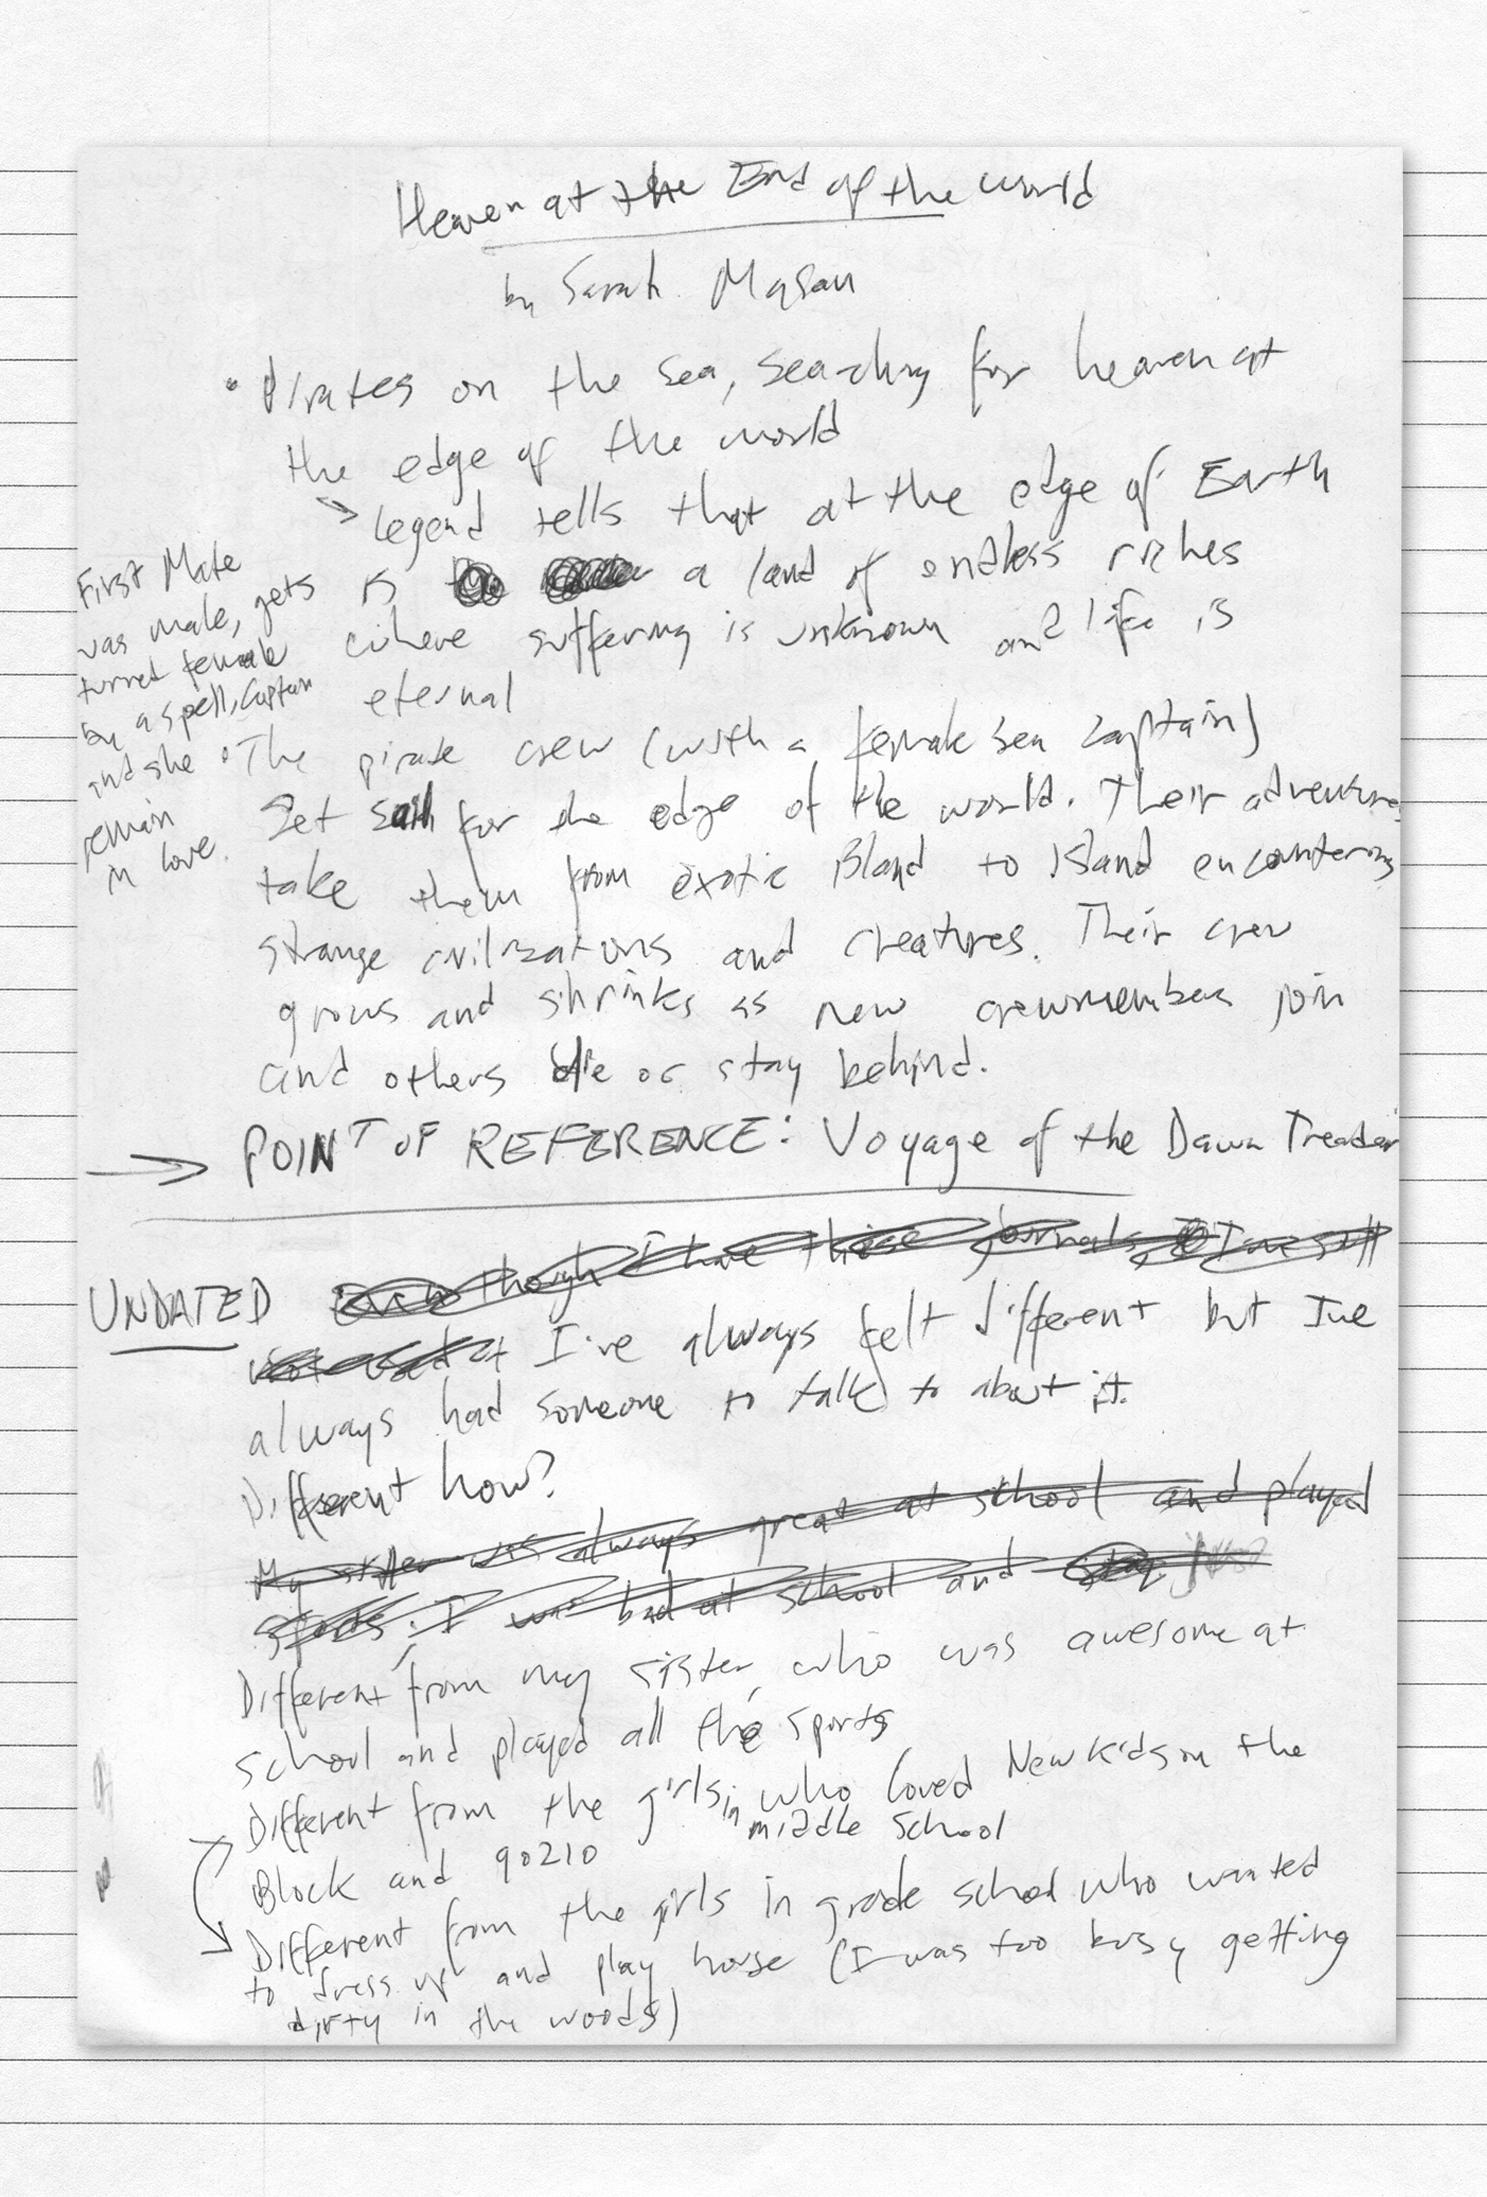 Heaven at the End of the World
by Sarah Mason
• Pirates on the sea, searching for heaven at
the edge of the world
→ Legend tells that at the edge of Earth
is a land of endless riches
where suffering is unknown and life is
eternal
First Mate
was male, gets
turned female
by a spell, Captain
and she
remain
in love.
• The pirate crew (with a female sea captain)
Set sail for the edge of the world. Their adventures
take them from exotic island to island encountering
strange civilizations and creatures. Their crew
grows and shrinks as new crewmembers join
and others die or stay behind.
→ POINT OF REFERENCE: Voyage of the Dawn Treader
UNDATED Even though I have these journals I've still
not I've always felt different but I've
always had someone to talk to about it.
Different how?
My sister was always great at school and played
sports. I was bad at school and
Different from my sister, who was awesome at
school and played all the sports
Different from the girls in middle school who loved New Kids on the
Block and 90210
Different from the girls in grade school who wanted
to dress up and play house (I was too busy getting
dirty in the woods)